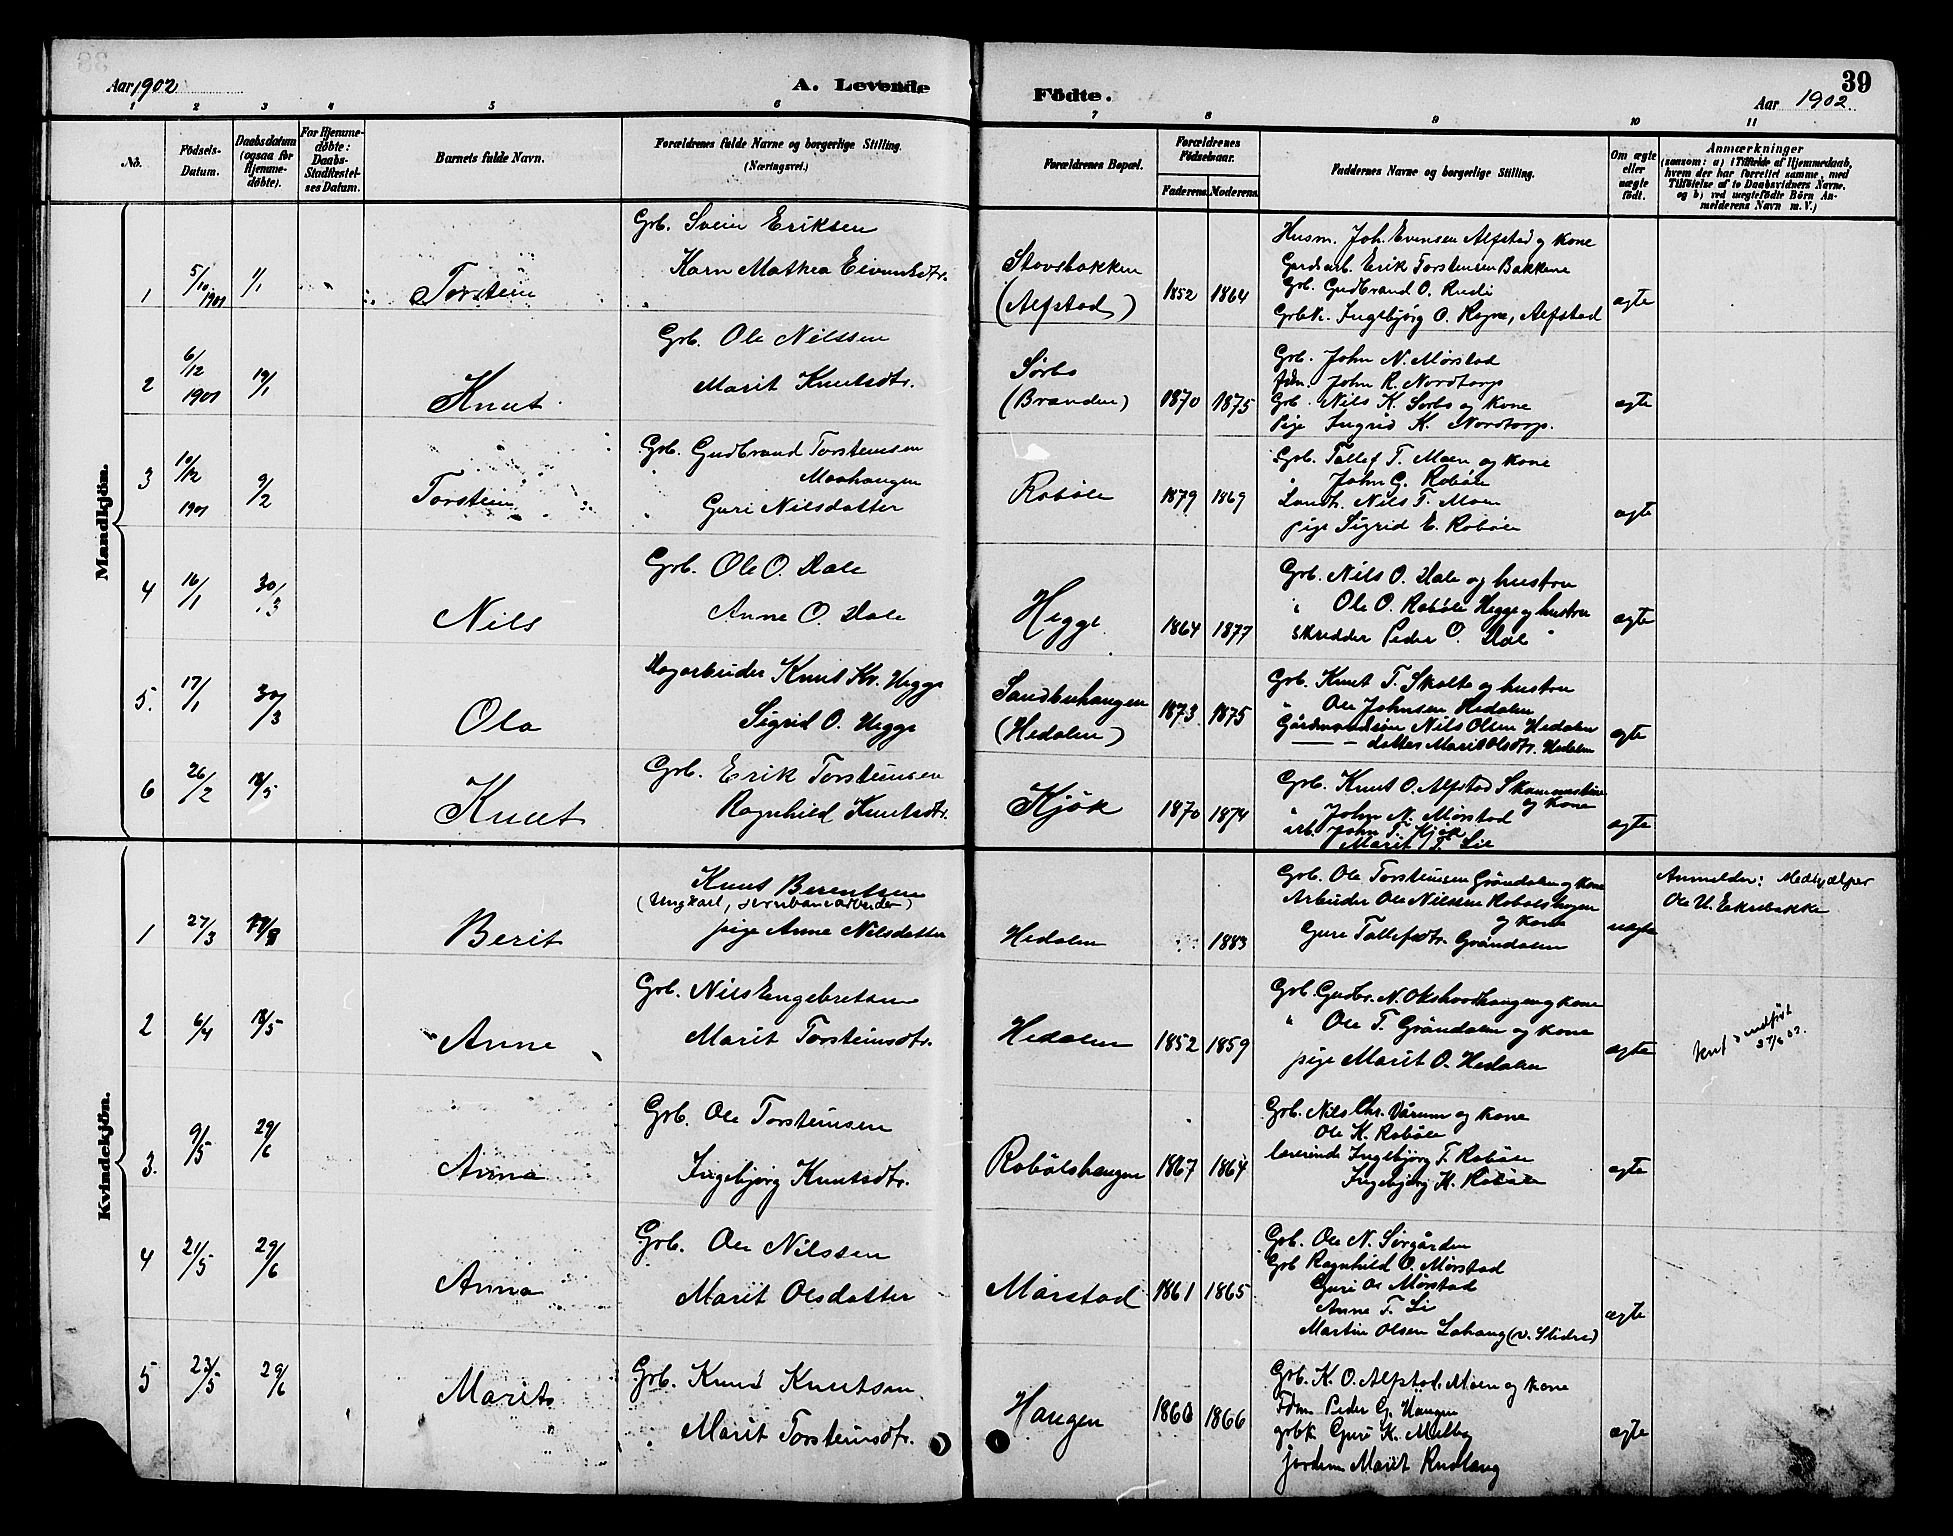 39
Aar 1902
A. Levende Födte.
Aar 1902
1 2 3 4 5 6 7 8 9 10 11
No.
Födsels-Datum.
Daabsdatum (ogsaa for Hjemme-døbte).
For Hjemme-døbte: Daabs-Stadfæstel-ses Datum.
Barnets fulde Navn.
Forældrenes fulde Navne og borgerlige Stilling.
(Næringsvei.)
Forældrenes Bopæl.
Forældrenes Födselsaar.
Faderens. Moderens.
Faddernes Navne og borgerlige Stilling.
Om ægte eller uægte födt.
Anmærkninger
(saasom: a) i Tilfælde af Hjemmedaab,
hvem der har forrettet samme, med
Tilföielse af to Daabsvidners Navne,
og b) ved uægtefödte Börn An-
melderens Navn m. V.)
Mandkjön.
1 5/10 1901 1/1 Torstein
Grb. Svein Eriksen
Karn Mathea Eivindsdtr.
Stovsbakken
(Alfstad)
1852 1864
Husm. Joh. Evensen Alfstad og kone
Gardarb. Erik Torstensen Bakkene
Grb. Gudbrand O. Rudi
Grbk. Ingebjörg O. Rogne, Alfstad
ægte
2 6/12 1901 19/1 Knut
Grb. Ole Nilssen
Marit Knutsdtr.
Sørbo
(Branden)
1870 1875
Grb. John N. Mørstad
Fdm. John R. Nordtorp
Grb. Nils K. Sørbo og kone
Pige Ingrid K. Nordtorp.
ægte
3 10/12 1901 9/2 Torstein
Grb. Gudbrand Torsteinsen
Moahaugen
Guri Nilsdatter
Robøle
1879 1869
Grb. Tollef T. Moen og kone
" John G. Robøle
Landh. Nils T. Moen
pige Sigrid E. Robøle
ægte
4 16/1 30/3 Nils
Grb. Ole O. Dale
Anne O. Dale
Hegge
1864 1877
Grb. Nils O. Dale og hustru
" Ole O. Robøle Hegge og hustru
skredder Peder O. Dale "
ægte
5. 17/1 30/3 Ola
Dagarbeider Knut Kr. Hegge
Sigrid O. Hegge
Sandbuhaugen
(Hedalen)
1873. 1875
Grb. Knut T. Skolte og hustru
" Ole Johnsen Hedalen
Gårdmandssøn Nils Olsen Hedalen
— — datter Marit Olsdtr. Hedalen
ægte
6 26/2 18/5 Knut
Grb. Erik Torsteinsen
Ragnhild Knutsdtr.
Kjök
1870 1874
Grb. Knut O. Alfstad Skammestein
og kone
" John N. Mørstad
arb. John T. Kjök
Marit T. Lie
ægte
Kvindekjön.
1 27/3 Berit
Knut Berentsen
(Ungkarl, jernbanearbeider)
pige Anne Nilsdatter
Hedalen
1883
Grb. Ole Torsteinsen Gröndalen og kone
Arbeider Ole Nilssen Robølshaugen
og kone
Guri Tollefsdtr. Gröndalen
uægte
Anmelder: Medhjælper
Ole U. Ekrebakke
2 6/4 18/5 Anne
Grb. Nils Engebretsen
Marit Torsteinsdtr.
Hedalen
1852 1859
Grb. Gudbr. N. Okshovdhaugen og kone
" Ole T. Gröndalen og kone
pige Marit O. Hedalen
ægte
3. 9/5 29/6 Anna
Grb. Ole Torsteinsen
Ingebjörg Knutsdtr.
Robölshaugen
1867 1864
Grb. Nils Chr. Vårum og kone
Ole K. Robøle
lærerinde Ingebjörg T. Robøle
Ingebjörg K. Robøle
ægte
4 21/5 29/6 Anna
Grb. Ole Nilssen
Marit Olsdatter
Mørstad
1861 1865
Grb. Ole N. Sørgården
Grb Ragnhild O. Mørstad
Guri O. Mørstad
Anne T. Li
Martin Olsen Lohaug (v. Slidre)
ægte
5 23/5 29/6 Marit
Grb. Knud Knutsen
Marit Torsteinsdtr.
Haugen
1860 1866
Grb. K. O. Alfstad. Moen og kone
Fdm Peder G. Haugen
grbk Guri K. Melby
jordem Marit Rudlang
ægte